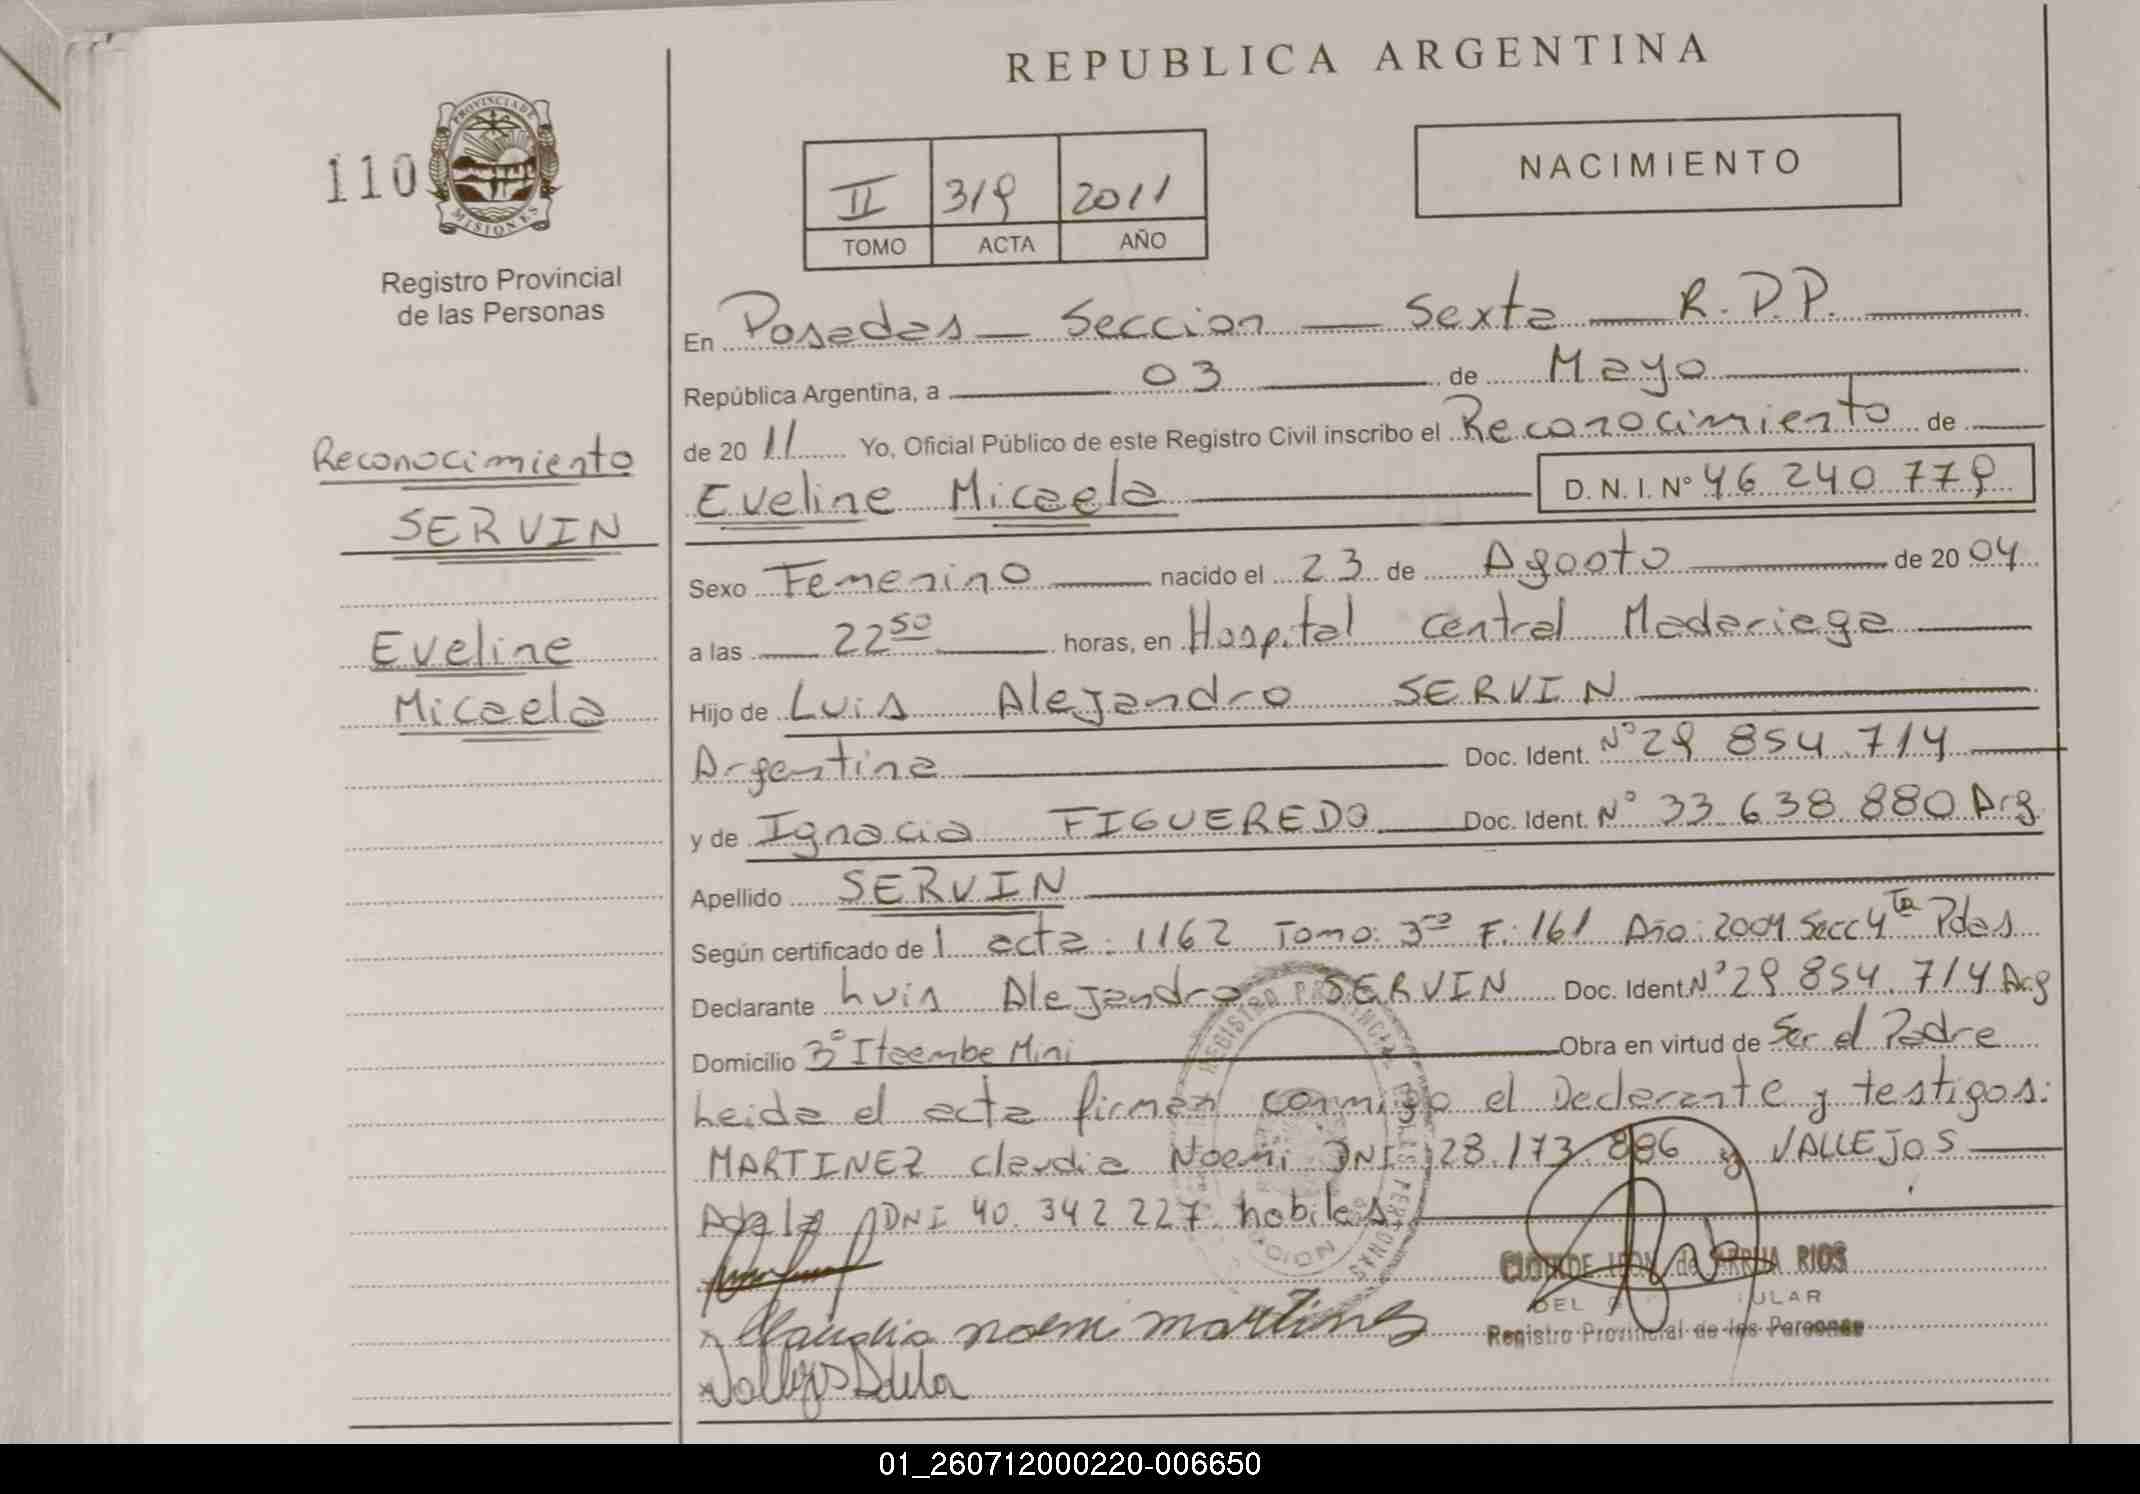 REPUBLICA ARGENTINA
110
PROVINCIA DE
MISIONES
Registro Provincial
de las Personas
II 319 2011
TOMO ACTA AÑO
NACIMIENTO
Reconocimiento
SERVIN
Eveline
Micaela
En Posadas — Seccion — Sexta — R.P.P.
República Argentina, a 03 de Mayo
de 20 11 Yo, Oficial Público de este Registro Civil inscribo el Reconocimiento de
Eveline Micaela D. N. I. Nº 46 240 779
Sexo Femenino nacido el 23 de Agosto de 20 04
a las 22 50 horas, en Hospital central Madariaga
Hijo de Luis Alejandro SERVIN
Argentina Doc. Ident. Nº 29 854.714
y de Ignacia FIGUEREDO Doc. Ident. Nº 33 638.880 Arg
Apellido SERVIN
Según certificado de 1 acta: 1162 Tomo: 3ro F: 161 Año: 2004 Secc 4ta Pdas
Declarante Luis Alejandro SERVIN Doc. Ident. Nº 29 854.714 Arg
Domicilio 3º Itaembe Mini Obra en virtud de Ser el Padre
Leida el acta firman conmigo el Declarante y testigos:
MARTINEZ Claudia Noemi DNI 28.173.886 y VALLEJOS
Adela DNI 40.342 227. habiles
REGISTRO PROVINCIAL DE LAS PERSONAS
x Claudia noemi martinez
x Vallejos Adela
de ARRUA RIOS
Registro Provincial de las Personas
01_260712000220-006650